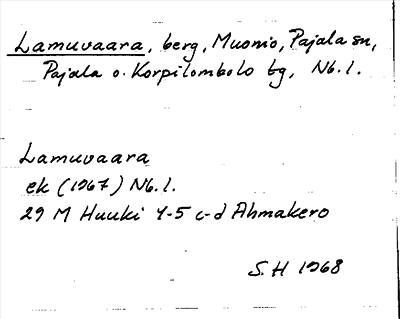 Lamuvaara, berg, Muonio, Pajala sn,
Pajala o. Korpilombolo tg, Nb.l.
Lamuvaara
ek (1967) Nb.l.
29 M Huuki 4-5 c-d Ahmakero
S.H 1968